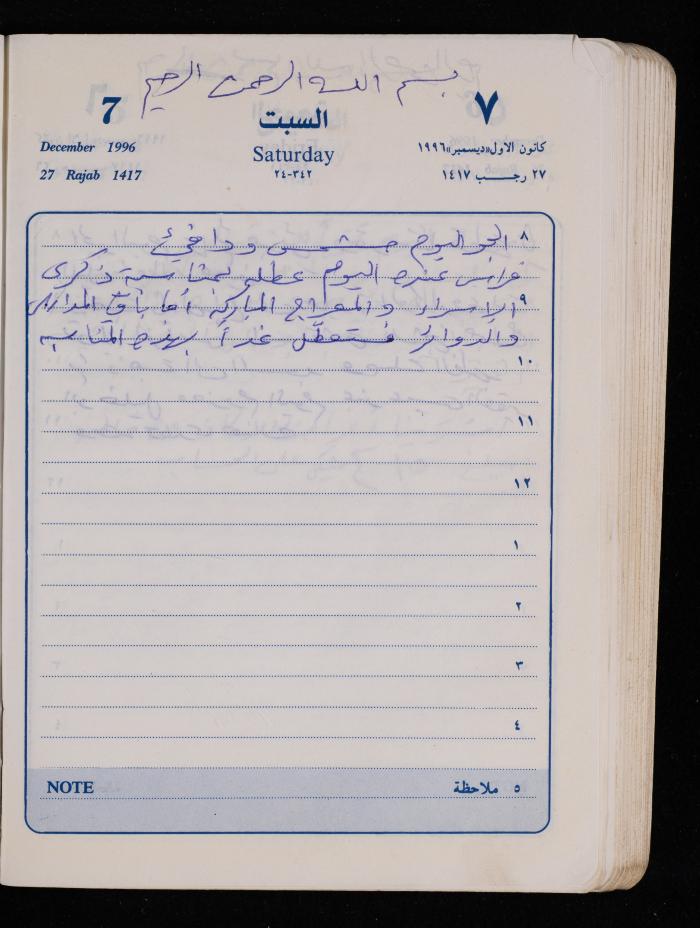 بسم الله الرحمن الرحيم
7 السبت ٧
December 1996 Saturday كانون الاول «ديسمبر» ١٩٩٦
27 Rajab 1417 ٣٤٢-٢٤ ٢٧ رجب ١٤١٧
٨ الجو اليوم مشمس ودافئ
فراس عنده اليوم عطله بمناسبة ذكرى
٩ الإسراء والمعراج المباركه أما باقي المدارس
والدوائر فستعطّل غداً بهذه المناسبه
١٠
١١
١٢
١
٢
٣
٤
NOTE ٥ ملاحظة